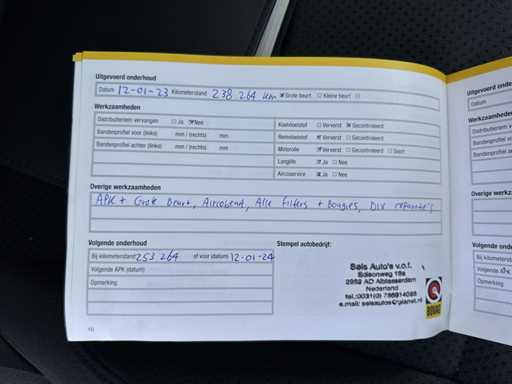 Uitgevoerd onderhoud
Datum 12-01-23 Kilometerstand 238 264 km Grote beurt Kleine beurt
Werkzaamheden
Distributieriem vervangen Ja Nee
Bandenprofiel voor (links) mm / (rechts) mm
Bandenprofiel achter (links) mm / (rechts) mm
Koelvloeistof Ververst Gecontroleerd
Remvloeistof Ververst Gecontroleerd
Motorolie Ververst Gecontroleerd Soort
Longlife Ja Nee
Aircoservice Ja Nee
Overige werkzaamheden
APK + Grote Beurt, Aircobeurt, Alle Filters + Bougies, Div reparatie's
Volgende onderhoud
Bij kilometerstand 253 264 of voor (datum) 12-01-24
Volgende APK (datum)
Opmerking
Stempel autobedrijf:
Sels Auto's v.o.f.
Edisonweg 18a
2952 AD Alblasserdam
Nederland
BOVAG
Uitgevoerd onderhoud
Datum
Werkzaamheden
Distributieriem vervangen
Bandenprofiel voor (links)
Bandenprofiel achter (links)
Overige werkzaamheden
Volgende onderhoud
Bij kilometerstand
Volgende APK
Opmerking